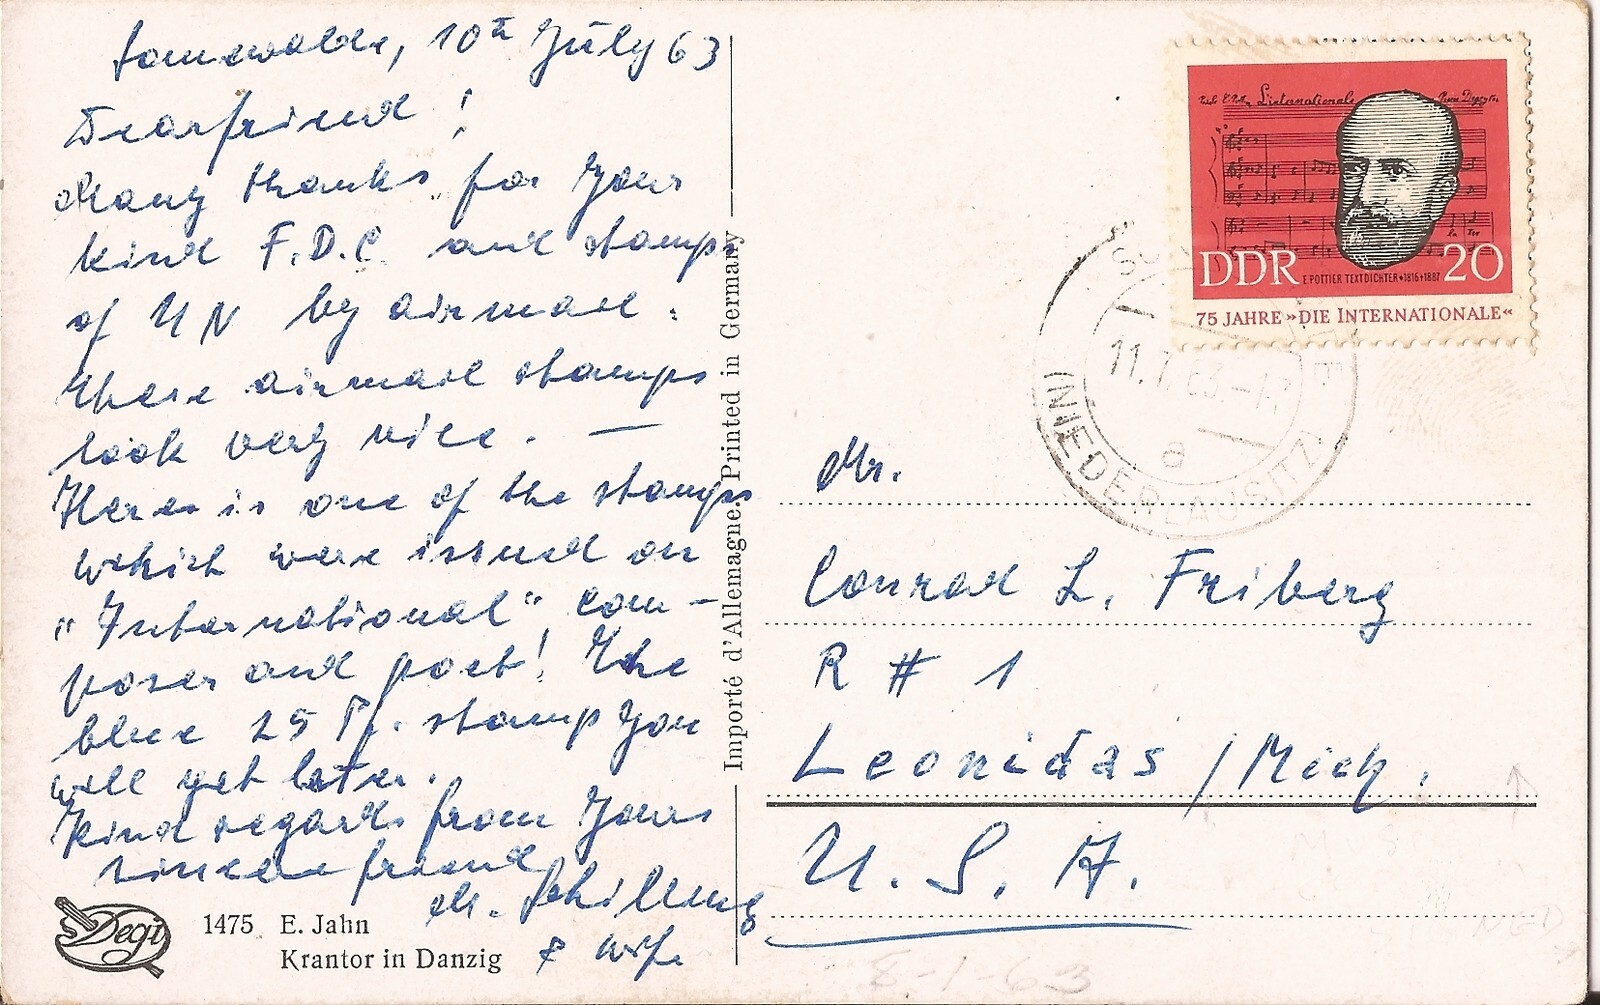 Sonnewalde, 10th July 63
Dearfriend!
Many thanks for Your
kind F.D.C. and stamps
of UN by airmail.
These airmail stamps
look very nice. —
Here is one of the stamps
which were issued on
"International" com-
poser and poet! The
blue 25 Pf. stamp You
will get later.
Kind regards from Yours
sincere friend
M. Schilling
& wife
Degi
1475 E. Jahn
Krantor in Danzig
Importé d'Allemagne. Printed in Germany
L'internationale
DDR 20
E. POTTIER TEXTDICHTER • 1816 † 1887
75 JAHRE »DIE INTERNATIONALE«
11.7.63
a
(NIEDERLAUSITZ)
Mr.
Conrad L. Friberg
R # 1
Leonidas / Mich.
U. S. A.
8-1-63